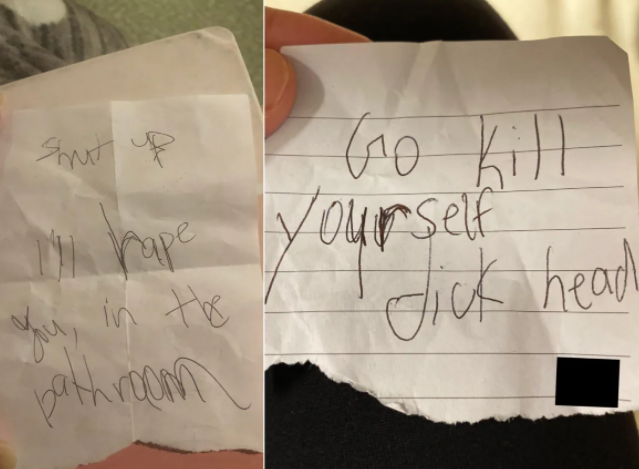 Shut up
I'll rape
you, in the
bathroom
Go kill
yourself
dick head